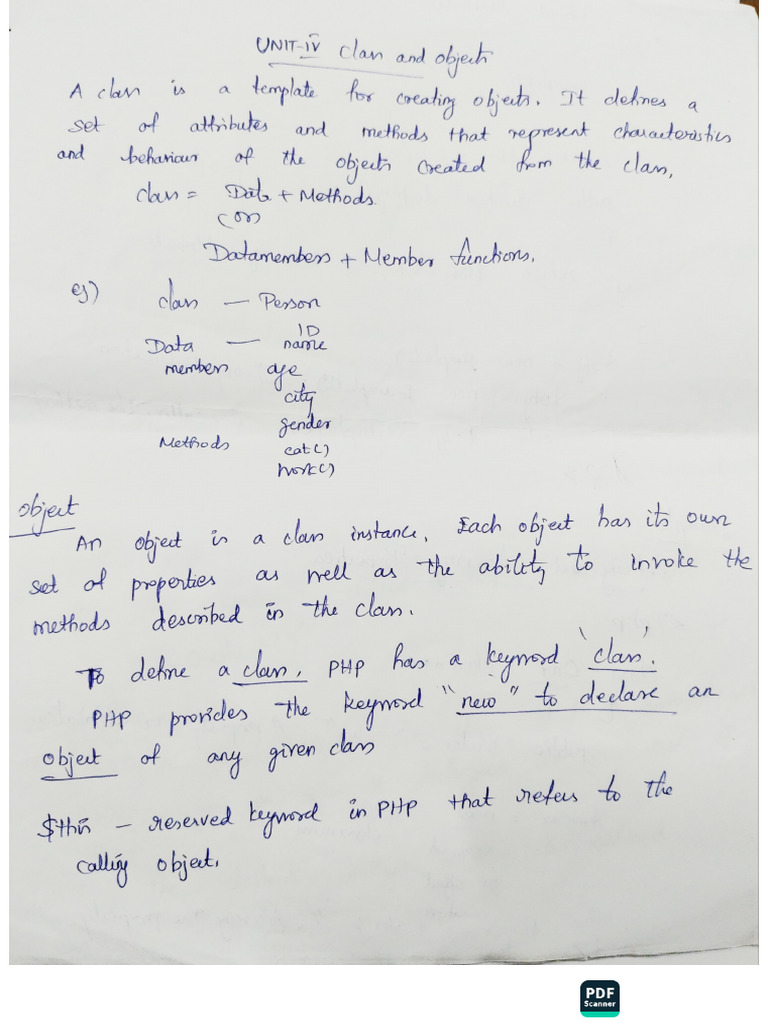 UNIT-IV Class and objects
A class is a template for creating objects. It defines a
set of attributes and methods that represent characteristics
and behaviour of the objects created from the class,
class = Data + Methods
(or)
Datamembers + Member functions.
eg) class — Person
Data — ID
name
members age
city
gender
Methods eat()
work()
object
An object is a class instance. Each object has its own
set of properties as well as the ability to invoke the
methods described in the class.
To define a class, PHP has a keyword 'class'.
PHP provides the keyword "new" to declare an
object of any given class
$this — reserved keyword in PHP that refers to the
calling object.
PDF
Scanner